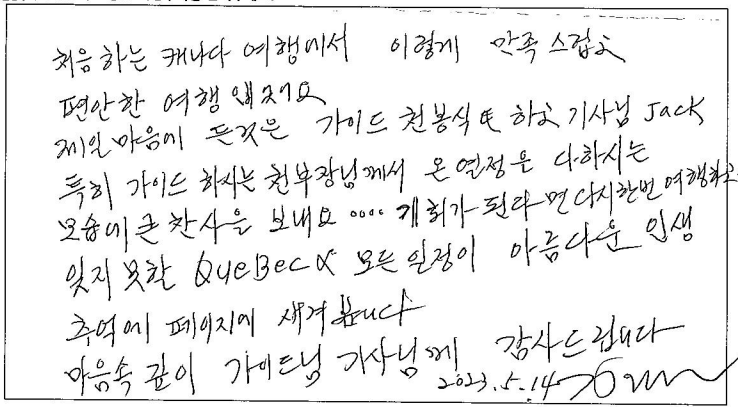 처음 하는 캐나다 여행에서 이렇게 만족스럽고
편안한 여행 였어요
제일 마음에 든것은 가이드 천봉식氏 하고 기사님 JACK
특히 가이드 하시는 천부장님께서 온 열정을 다하시는
모습에 큰 찬사를 보내요 .... 기회가 된다면 다시한번 여행하고
잊지 못할 QueBec 모든 일정이 아름다운 인생
추억에 페이지에 새겨 봅니다
마음속 깊이 가이드님 기사님께 감사드립니다
2023.5.14